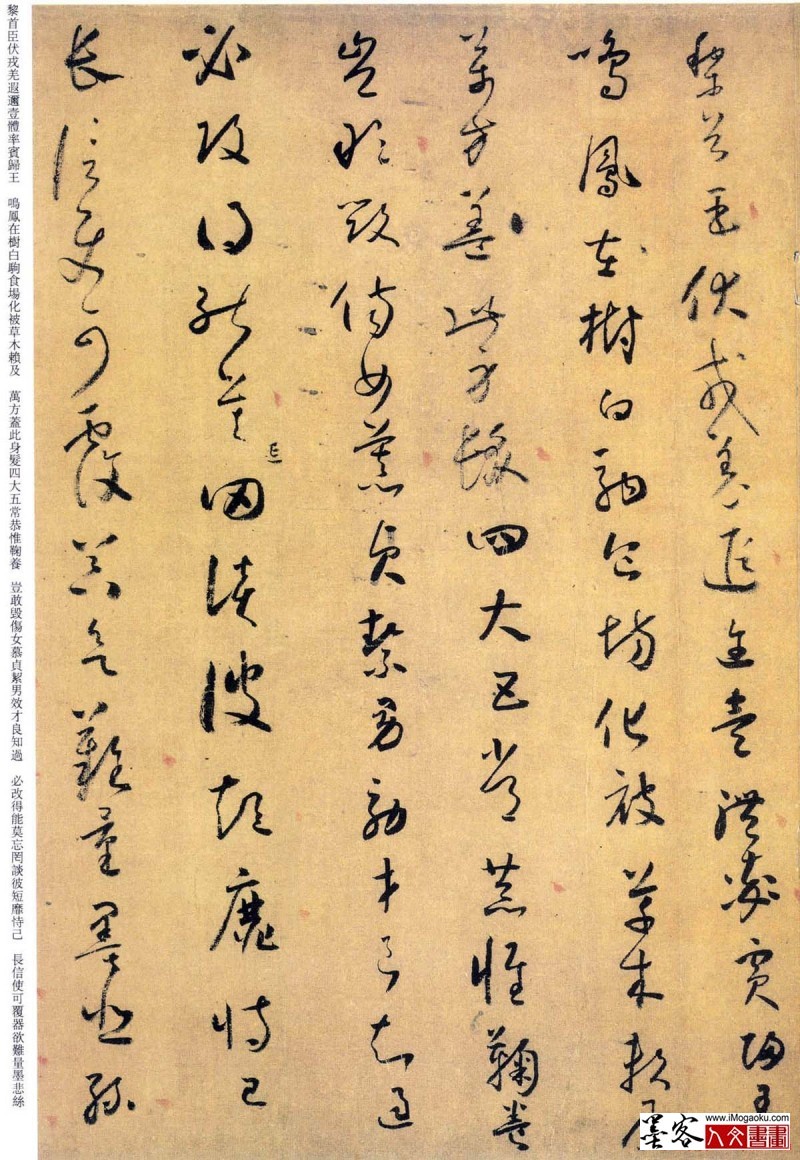 黎首臣伏戎羌遐迩壹體率賓歸王
鳴鳳在樹白駒食場化被草木賴及
萬方蓋此身髮四大五常恭惟鞠養
豈敢毀傷女慕貞絜男效才良知過
必改得能莫忘罔談彼短靡恃己
長信使可覆器欲難量墨悲絲
黎首臣伏戎羌遐邇壹體率賓歸王 鳴鳳在樹白駒食場化被草木賴及 萬方蓋此身髮四大五常恭惟鞠養 豈敢毀傷女慕貞絜男效才良知過 必改得能莫忘罔談彼短靡恃己 長信使可覆器欲難量墨悲絲
墨客
www.iMogaoku.com
人文書畫